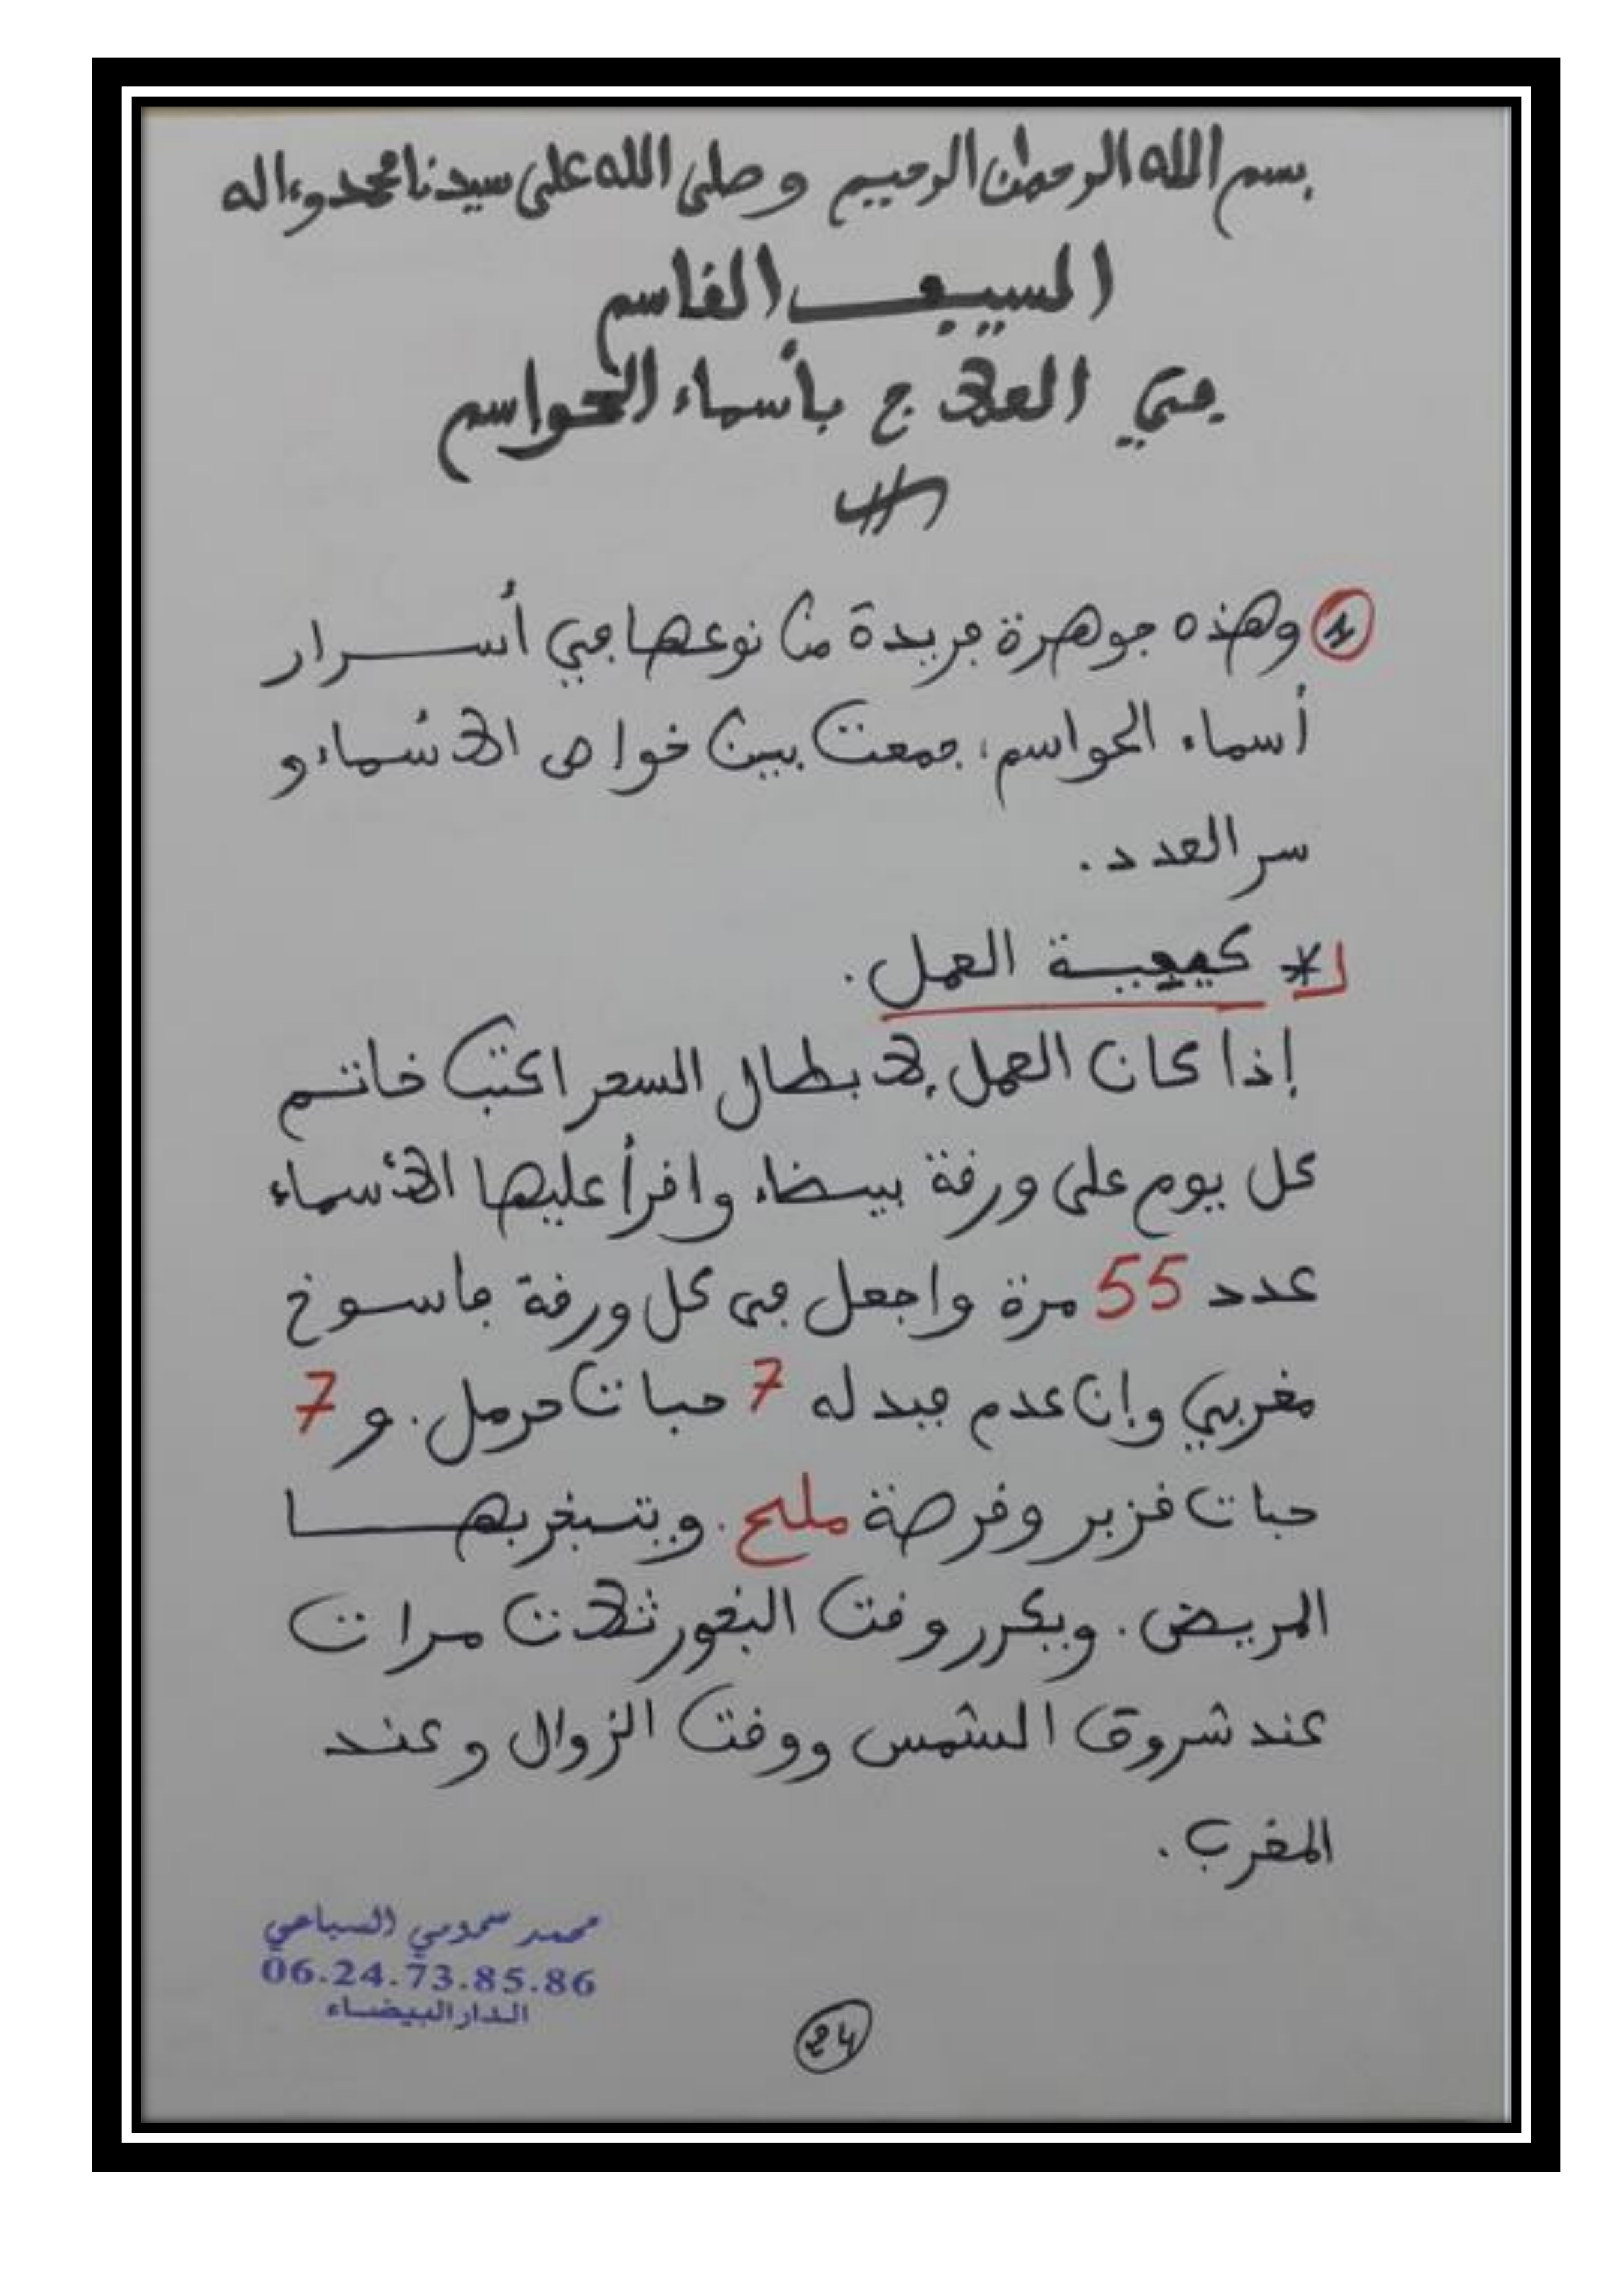 بسم الله الرحمان الرحيم وصلى الله على سيدنا محمد وءاله
السيف القاسم
في العلاج بأسماء الحواسم
1 وهذه جوهرة فريدة من نوعها في أسرار
أسماء الحواسم، جمعت بين خواص الأسماء و
سر العدد.
* كيفية العمل.
إذا كان العمل لإبطال السحر اكتب خاتم
كل يوم على ورقة بيضاء واقرأ عليها الأسماء
عدد 55 مرة واجعل في كل ورقة فاسوخ
مغربي وإن عدم فبدله 7 حبات حرمل. و 7
حبات قزبر وقرصة ملح. ويتبخر بها
المريض. ويكرر وقت البخور ثلاث مرات
عند شروق الشمس ووقت الزوال وعند
المغرب.
محمد سحومي السباعي
06.24.73.85.86
الدار البيضاء
24